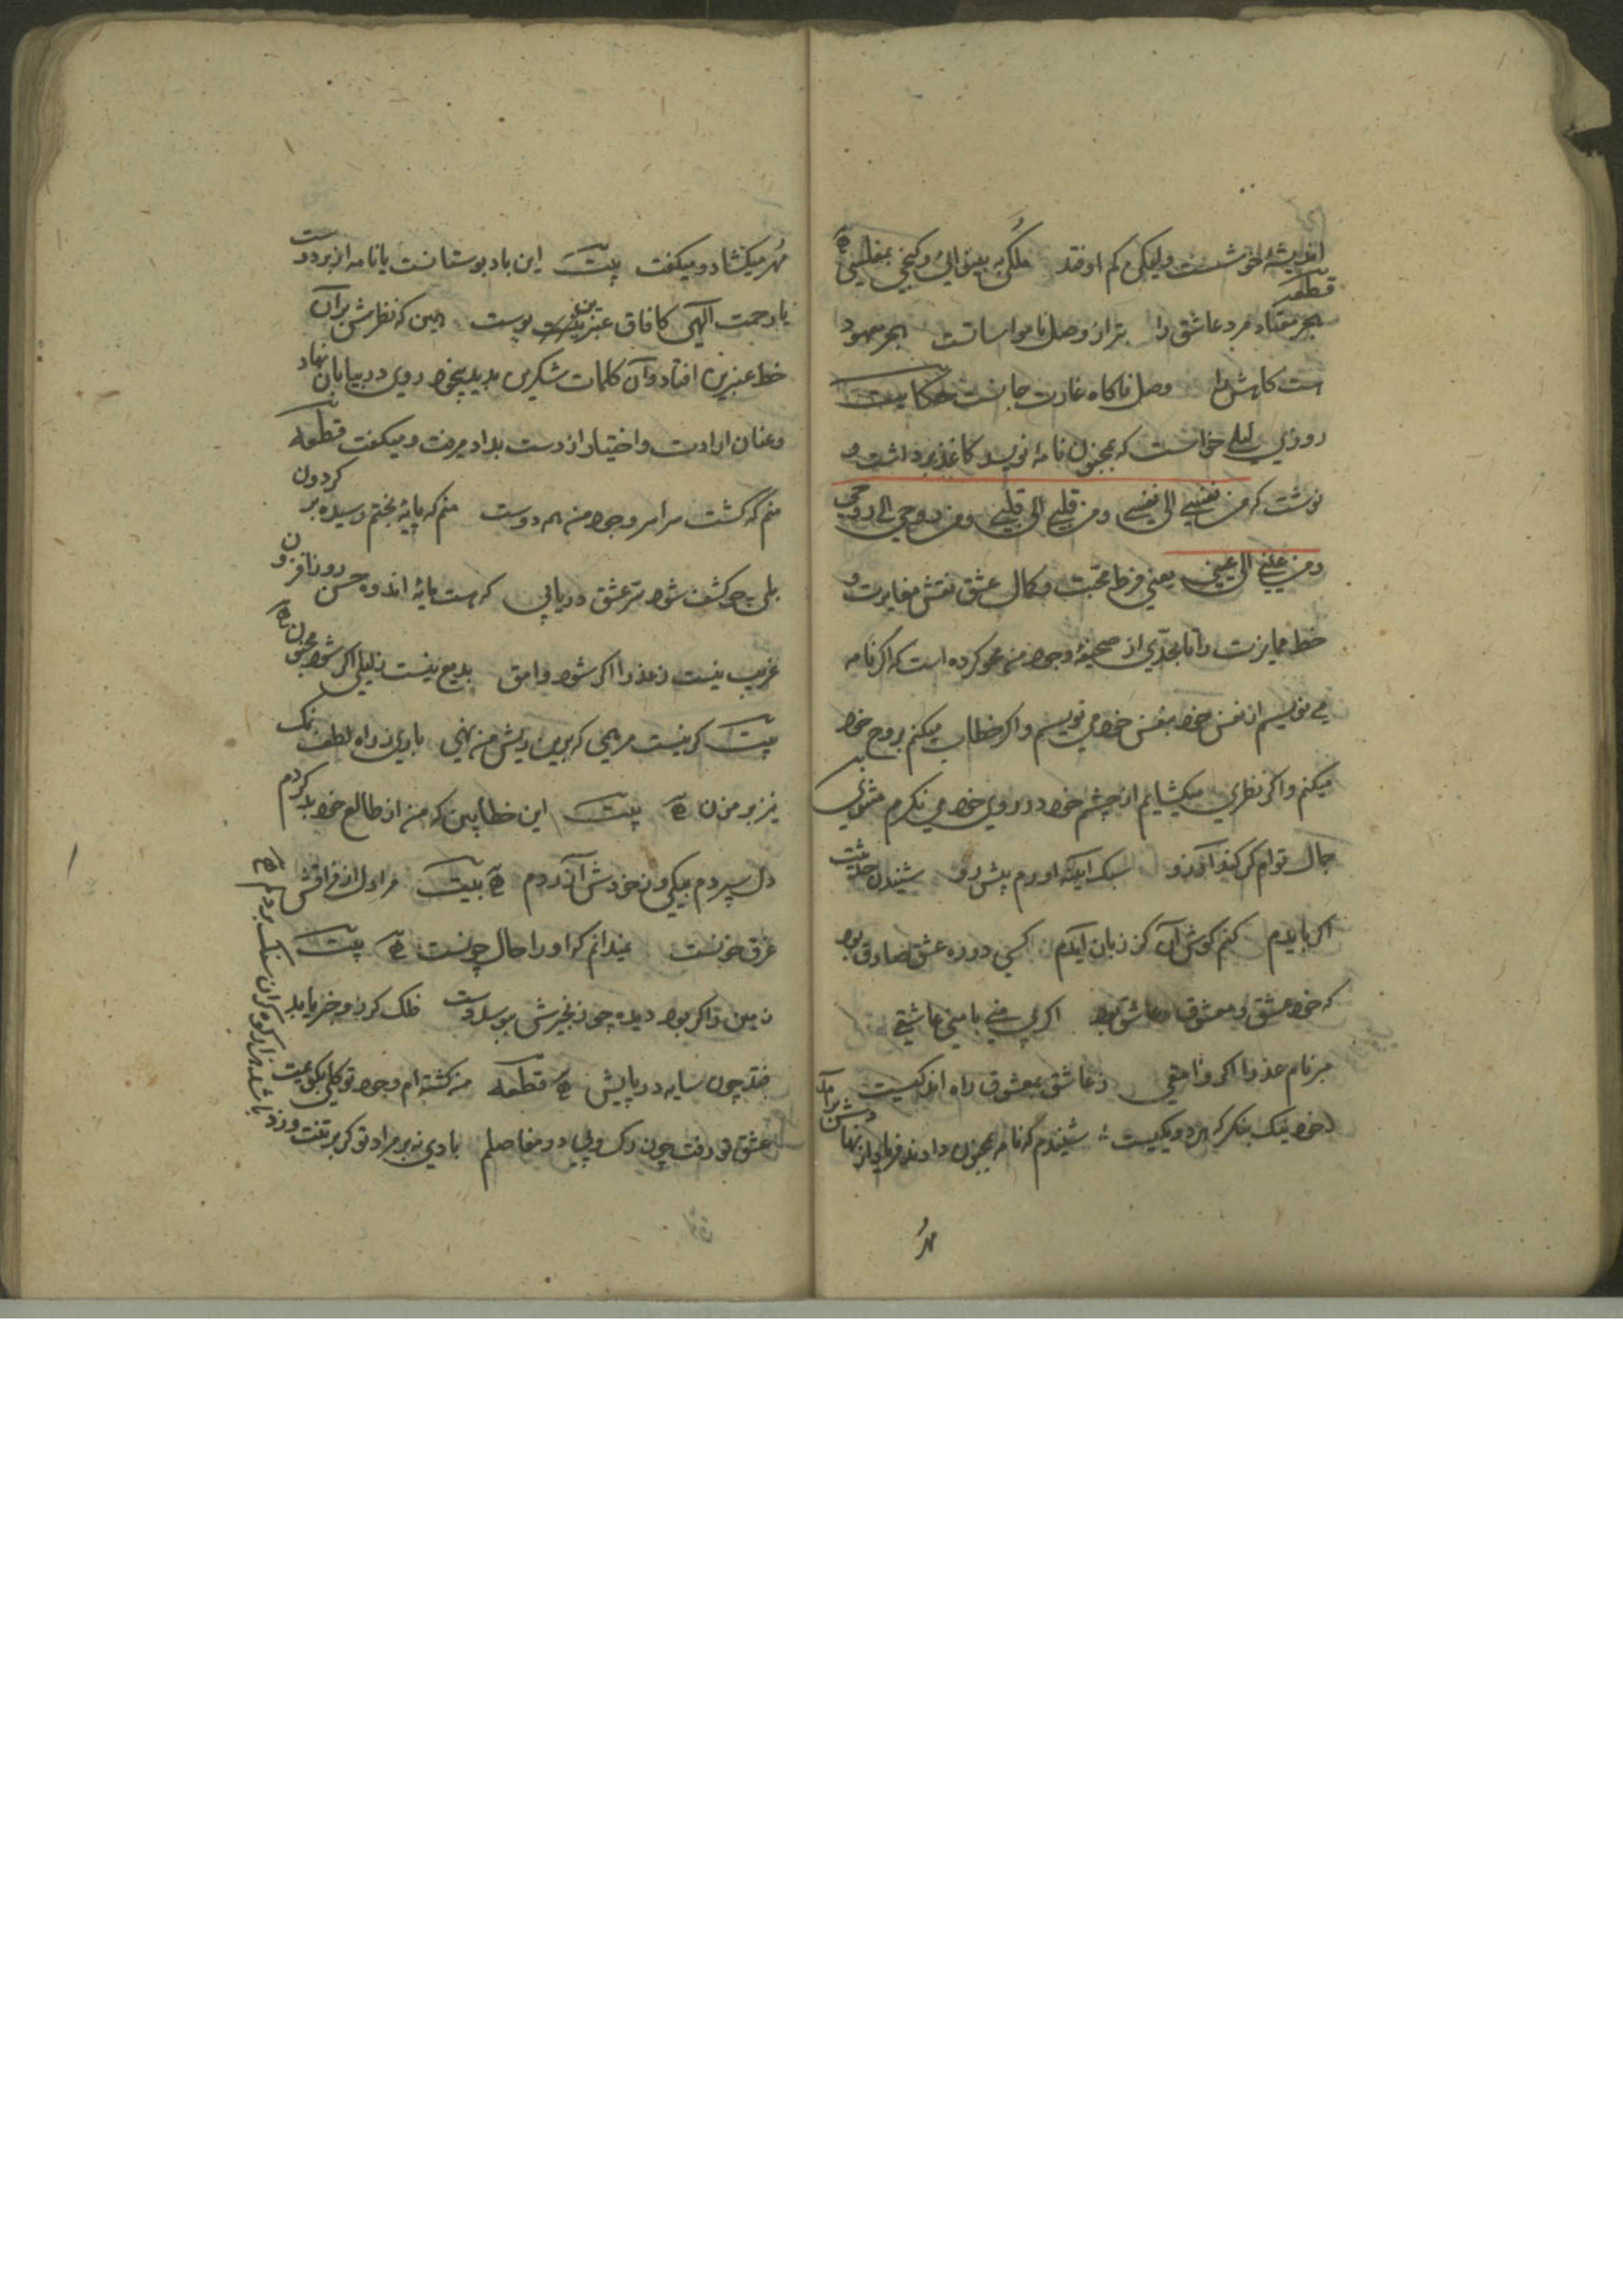 اندیشهٔ خوشست ولیکن کم اوفتد ملکی به بینوایی و کنجی بمفلسی
قطعه
هجر معتاد مرد عاشق را بتر از وصل نامواساتست هجر معهود
است کاهش دل وصل ناکاه غارت جانست حکایت
روزی لیلی خواست که بمجنون نامهٔ نویسد کاغذ برداشت و
نوشت که من نفسی الی نفسی ومن قلبی الی قلبی ومن روحی الی روحی
ومن عینی الی عینی یعنی فرط محبت وکمال عشق نقش مغایرت و
خط ممایزت را تا بحدّی از صحیفهٔ وجود من محو کرده است که اکر نامه
می نویسم از نفس خود بنفس خود می نویسم واکر خطاب میکنم بروح خود
میکنم واکر نظری میکشایم از چشم خود در روی خود می نکرم مثنوی
جمال توام کر کند آرزو سبک آینه آورم پیش رو شنیدن حدیثت
اکر بایدم کنم کوش آن کز زبان آیدم کسی در ره عشق صادق بود
که خود عشق و معشوق و عاشق بود اکر بی منی یا منی عاشقی
مبر نام عذرا اکر وامقی ز عاشق بمعشوق راه اندکیست
خود نیک بنکر که هر دو یکیست شنیدم که نامه بمجنون دادند فریاد از نهادش برآمد
مُهر
مُهر میکشاد و میکفت بیت این باد بوستانست یا نامه از بر دوست
یا رحمت الهی کافاق عنبرین بوست همین که نظرش بر آن
خط عنبرین افتاد وآن کلمات شکرین بدید بیخود روی در بیابان نهاد
وعنان ارادت واختیار از دست بداد میرفت و میکفت قطعه
منم که کشت سراسر وجود من همه دوست منم که پایهٔ بختم رسیده بر کردون
بلی چو کشف شود سرّ عشق دریابی که هست مایهٔ اندوه حسن روز افزون
غریب نیست ز عذرا اکر شود وامق بدیع نیست ز لیلی اکر شود مجنون
بیت کر نیست مرهمی که برین ریش من نهی باری ز راه لطف نمک
نیز بر مزن بیت این خطا بین که من از طالع خود بد کردم
دل سپردم بیکی وز خودش آزردم بیت مرا دل از فراقش
غرق خونست نمیدانم که او را حال چونست بیت
زمین را کر بود دیده چو زنجیرش ببوسد دست فلک کر زو خبر یابد
فتد چون سایه در پایش قطعه من کشته ام وجود تو کلی بکو عیت
عشق تو رفت چون رک و پی در مفاصلم بادی نه بر مراد تو کر بر تنت وزد
باشد هزار کوه کران سنک بر دلم